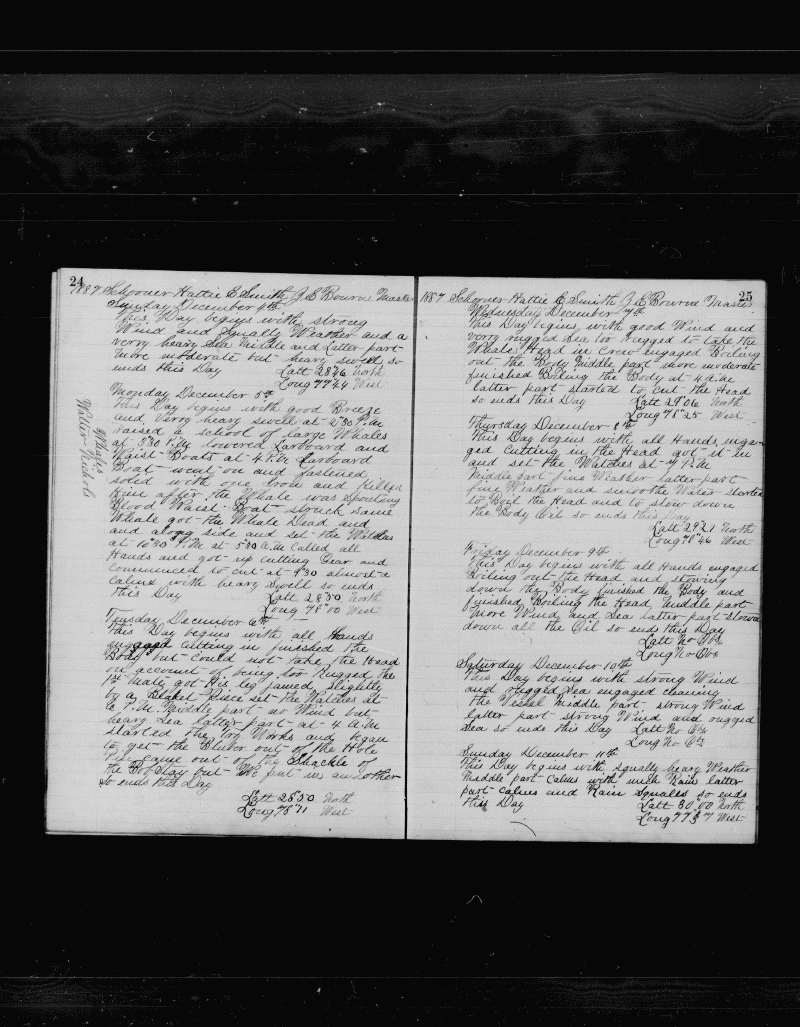 24
1887 Schooner Hattie E Smith J E Bourne Master
Sunday December 4th
This Day begins with strong
Wind and Squally Weather and a
very heavy Sea Middle and Latter part
more moderate but heavy swell so
ends this Day Latt 28°46 North
Long 77°44 West
Monday December 5th
This Day begins with good Breeze
and Very heavy swell at 2"30 P.M
raised a school of large Whales
at 3"30 P.M lowered Larboard and
Waist Boats at 4 P.M Larboard
Boat went on and fastened
solid with one Iron and killed
him after the Whale was spouting
Blood Waist Boat struck same
Whale got the Whale Dead and
and along side and set the Watches
at 10"30 P.M at 5"30 A.M Called all
Hands and got up cutting Gear and
commenced to cut at 9"30 almost a
Calm with heavy Swell so ends
this Day Latt 28"50 North
Long 78"00 West
Whale
Tuesday December 6th
This Day begins with all hands
engaged Cutting in finished the
Body but could not take the Head
on account of being too Rugged the
1st Mate got his leg jamed slightly
by a Blaket Piece set the Watches at
6 P.M Middle part no Wind but
heavy Sea latter part at 4 A.M
started the Try Works and began
to get the Blubor out of the Hole
Pin came out of the Shackle of
the Bobstay but We put in another
So ends this Day
Latt 28"50 North
Long 78"11 West
25
1887 Schooner Hattie E Smith J E Bourne Master
Wednesday December 7th
This Day begins with good Wind and
very rugged Sea too rugged to take the
Whales Head in Crew engaged Boiling
out the Body Middle part more moderate
finished Boiling the Body at 4 A.M
latter part started to cut the Head
so ends this Day Latt 29"06 North
Long 78"25 West
Thursday December 8th
This Day begins with all Hands enga-
ged Cutting in the Head got it in
and set the Watches at 7 P.M
Middle part fine Weather latter part
fine Weather and smoothe Water started
to Boil the Head and to slow down
the Body Oil so ends this Day
Latt 29"21 North
Long 78"46 West
Friday December 9th
This Day begins with all Hands engaged
Boiling out the Head and stowing
down the Body finished the Body and
finished Boiling the Head Middle part
More Wind and Sea latter part stowed
down all the Oil so ends this Day
Latt No Obs
Long No Obs
Saturday December 10th
This Day begins with strong Wind
and rugged Sea engaged cleaning
the Vessel Middle part strong Wind
latter part strong Wind and rugged
Sea so ends this Day Latt No Obs
Long No Obs
Sunday December 11th
This Day begins with squally heavy Weather
Middle part Calms with much Rain latter
part calms and Rain Squalls so ends
this Day Latt 30"00 North
Long 77"37 West